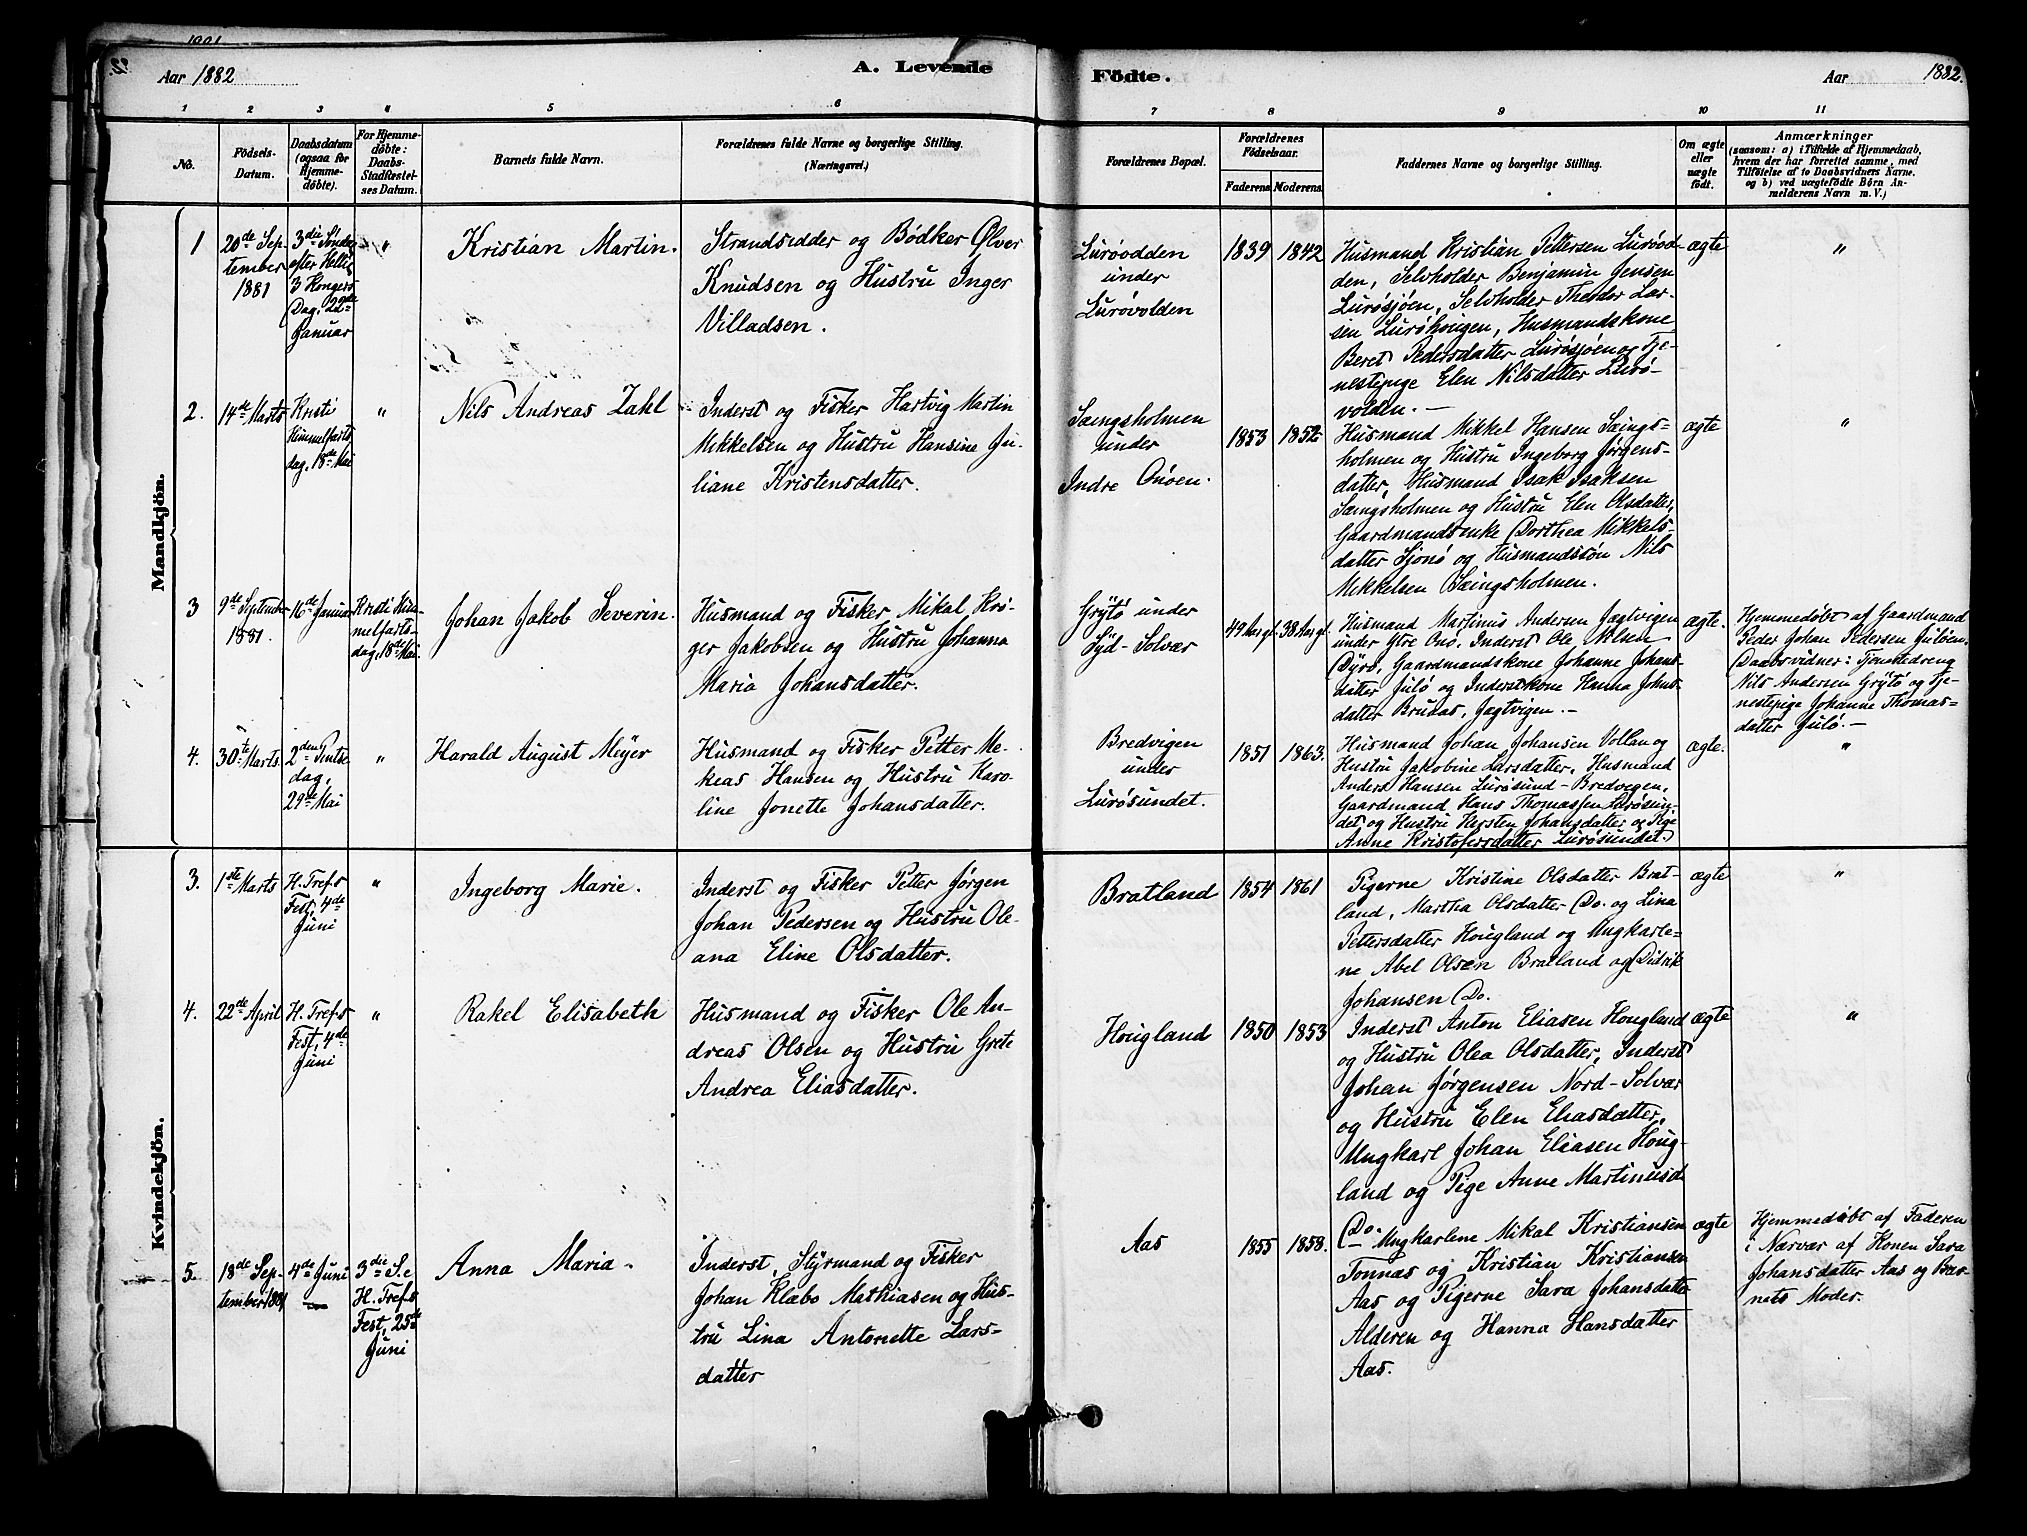 Aar 1882
A. Levende
Födte.
Aar 1882.
1 2 3 4 5 6 7 8 9 10 11
No.
Födsels-
Datum.
Daabsdatum
(ogsaa for
Hjemme-
döbte).
For Hjemme-
döbte:
Daabs-
Stadfæstel-
ses Datum.
Barnets fulde Navn.
Forældrenes fulde Navne og borgerlige Stilling.
(Næringsvei.)
Forældrenes Bopæl.
Forældrenes
Födselsaar.
Faderens. Moderens.
Faddernes Navne og borgerlige Stilling.
Om ægte
eller
uægte
födt.
Anmærkninger
(saasom: a) i Tilfælde af Hjemmedaab,
hvem der har forrettet samme, med
Tilföielse af to Daabsvidners Navne,
og b) ved uægtefödte Börn An-
melderens Navn m.V.)
Mandkjön.
1
20de Sep-
tember
1881
3die Söndag
efter Hellig
3 Kongers
Dag, 22de
Januar
"
Kristian Martin.
Strandsidder og Bødker Ølver
Knudsen og Hustru Inger
Villadsen.
Lurøodden
under
Lurøvolden
1839
1842
Husmand Kristian Pettersen Lurøod-
den, Selvholder Benjamin Jensen
Lurøsjøen, Selvholder Theodor Lar-
sen Lurøhougen, Husmandskone
Beret Pedersdatter Lurøsjøen og Tje-
nestepige Elen Nilsdatter Lurø-
volden. —
ægte
"
2.
14de Marts
Kristi
Himmelfarts
dag, 18de Mai
"
Nils Andreas Zahl
Inderst og Fisker Hartvig Martin
Mikkelsen og Hustru Hansine Ju-
liane Kristensdatter.
Sængsholmen
under
Indre Onøen.
1853
1852
Husmand Mikkel Hansen Sængs-
holmen og Hustru Ingeborg Jørgens-
datter, Husmand Isak Isaksen
Sængsholmen og Hustru Elen Olsdatter,
Gaardmandsenke Dorthea Mikkels-
datter Sjonø og Husmandssøn Nils
Mikkelsen Sængsholmen.
ægte
"
3
9de September
1881.
16de Januar
Kristi Him-
melfarts-
dag, 18de Mai
Johan Jakob Severin.
Husmand og Fisker Mikal Krø-
ger Jakobsen og Hustru Johanna
Maria Johansdatter.
Grytø under
Syd-Solvær
49 Aar gl.
38 Aar gl.
Husmand Martinus Andersen Jagtvigen
under Ytre Onø, Inderst Ole Olsen
Dyrø, Gaardmandskone Johanne Johans-
datter Julø og Inderstkone Hanna Johns-
datter Brusas, Jagtvigen. —
ægte.
Hjemmedøbt af Gaardmand
Peder Johan Pedersen Juløen.
Daabsvidner: Tjenstedreng
Nils Andersen Grytø og Tje-
nestepige Johanne Thomas-
datter Julø. —
4.
30te Marts
2den Pintse
dag,
29de Mai
"
Harald August Meyer
Husmand og Fisker Petter Me-
keas Hansen og Hustru Karo-
line Jonette Johansdatter.
Bredvigen
under
Lurøsundet.
1851
1863.
Husmand Johan Johansen Vollan og
Hustru Jakobine Larsdatter, Husmand
Anders Hansen Lurøsund-Bredvegen,
Gaardmand Hans Thomassen Lurøsun-
det og Hustru Kersten Johansdatter og Pige
Anne Kristofersdatter Lurøsundet.
ægte.
"
Kvindekjön.
3.
1ste Marts
H. Tref.s
Fest, 4de
Juni
"
Ingeborg Marie.
Inderst og Fisker Petter Jørgen
Johan Pedersen og Hustru Ole-
ana Eline Olsdatter.
Bratland
1854
1861
Pigerne Kristine Olsdatter Brat-
land, Martha Olsdatter Do. og Lina
Pettersdatter Hougland og Ungkarle-
ne Abel Olsen Bratland og Didrik
Johansen Do.
ægte
"
4.
22de April
H. Tref.s
Fest, 4de
Juni
"
Rakel Elisabeth
Husmand og Fisker Ole An-
dreas Olsen og Hustru Grete
Andrea Eliasdatter.
Hougland
1850
1853
Inderst Anton Eliasen Hougland
og Hustru Olea Olsdatter, Inderst
Johan Jørgensen Nord-Solvær
og Hustru Elen Eliasdatter,
Ungkarl Johan Eliasen Houg-
land og Pige Anne Martinusd.
Do.
ægte
"
5.
18de Sep-
tember 1881
4de Juni
3die S. e
H. Tref.s
Fest, 25de
Juni
Anna Maria.
Inderst, Styrmand og Fisker
Johan Klæbo Mathiasen og Hus-
tru Lina Antonette Lars-
datter
Aas
1855
1858.
Ungkarlene Mikal Kristiansen
Tonnas og Kristian Kristiansen
Aas og Pigerne Sara Johansdatter
Alderen og Hanna Hansdatter
Aas.
ægte
Hjemmedøbt af Faderen
i Nærvær af Konen Sara
Johansdatter Aas og Bar-
nets Moder.